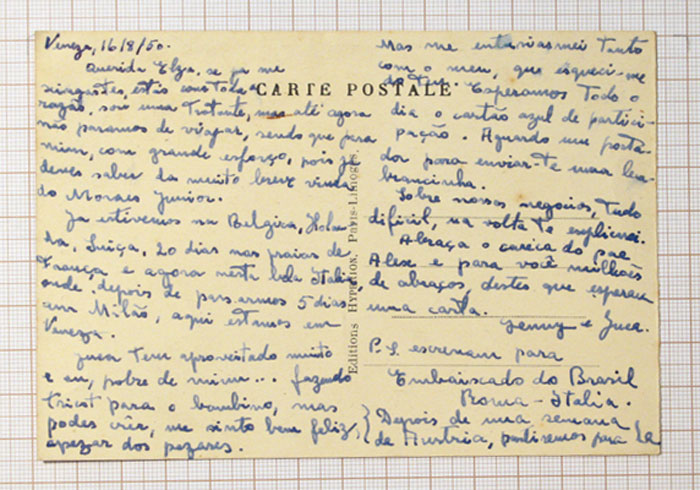 Veneza, 16/8/50.
Querida Elza, se ja me
xingastes, estás com toda
razão, sou uma tratante, mas até agora
não paramos de viajar, sendo que para
mim, com grande esforço, pois já
deves saber da muito breve vinda
do Moraes Junior.
Ja estivemos na Belgica, Holan
da, Suiça, 20 dias nas praias da
França e agora nesta bela Italia
onde, depois de passarmos 5 dias
em Milão, aqui estamos em
Veneza.
Juca tem aproveitado muito
e eu, pobre de mim... fazendo
tricot para o bambino, mas
podes crêr, me sinto bem feliz,
apezar dos pezares.
CARTE POSTALE
Editions HYPERION, Paris-Limoges
Mas me entusiasmei tanto
com o meu, que esqueci-me
do teu. Esperamos todo o
dia o cartão azul de partici-
pação. Aguardo um porta-
dor para enviar-te uma lem
brancinha.
Sobre nossos negocios, tudo
dificil, na volta te explicarei.
Abraça o careca do
Alex e para você milhões
de abraços, destes que esperam
uma carta.
Jenny e Juca.
P.S. escrevam para
Embaixada do Brasil
Roma - Italia.
Depois de uma semana
de Austria, partiremos para lá